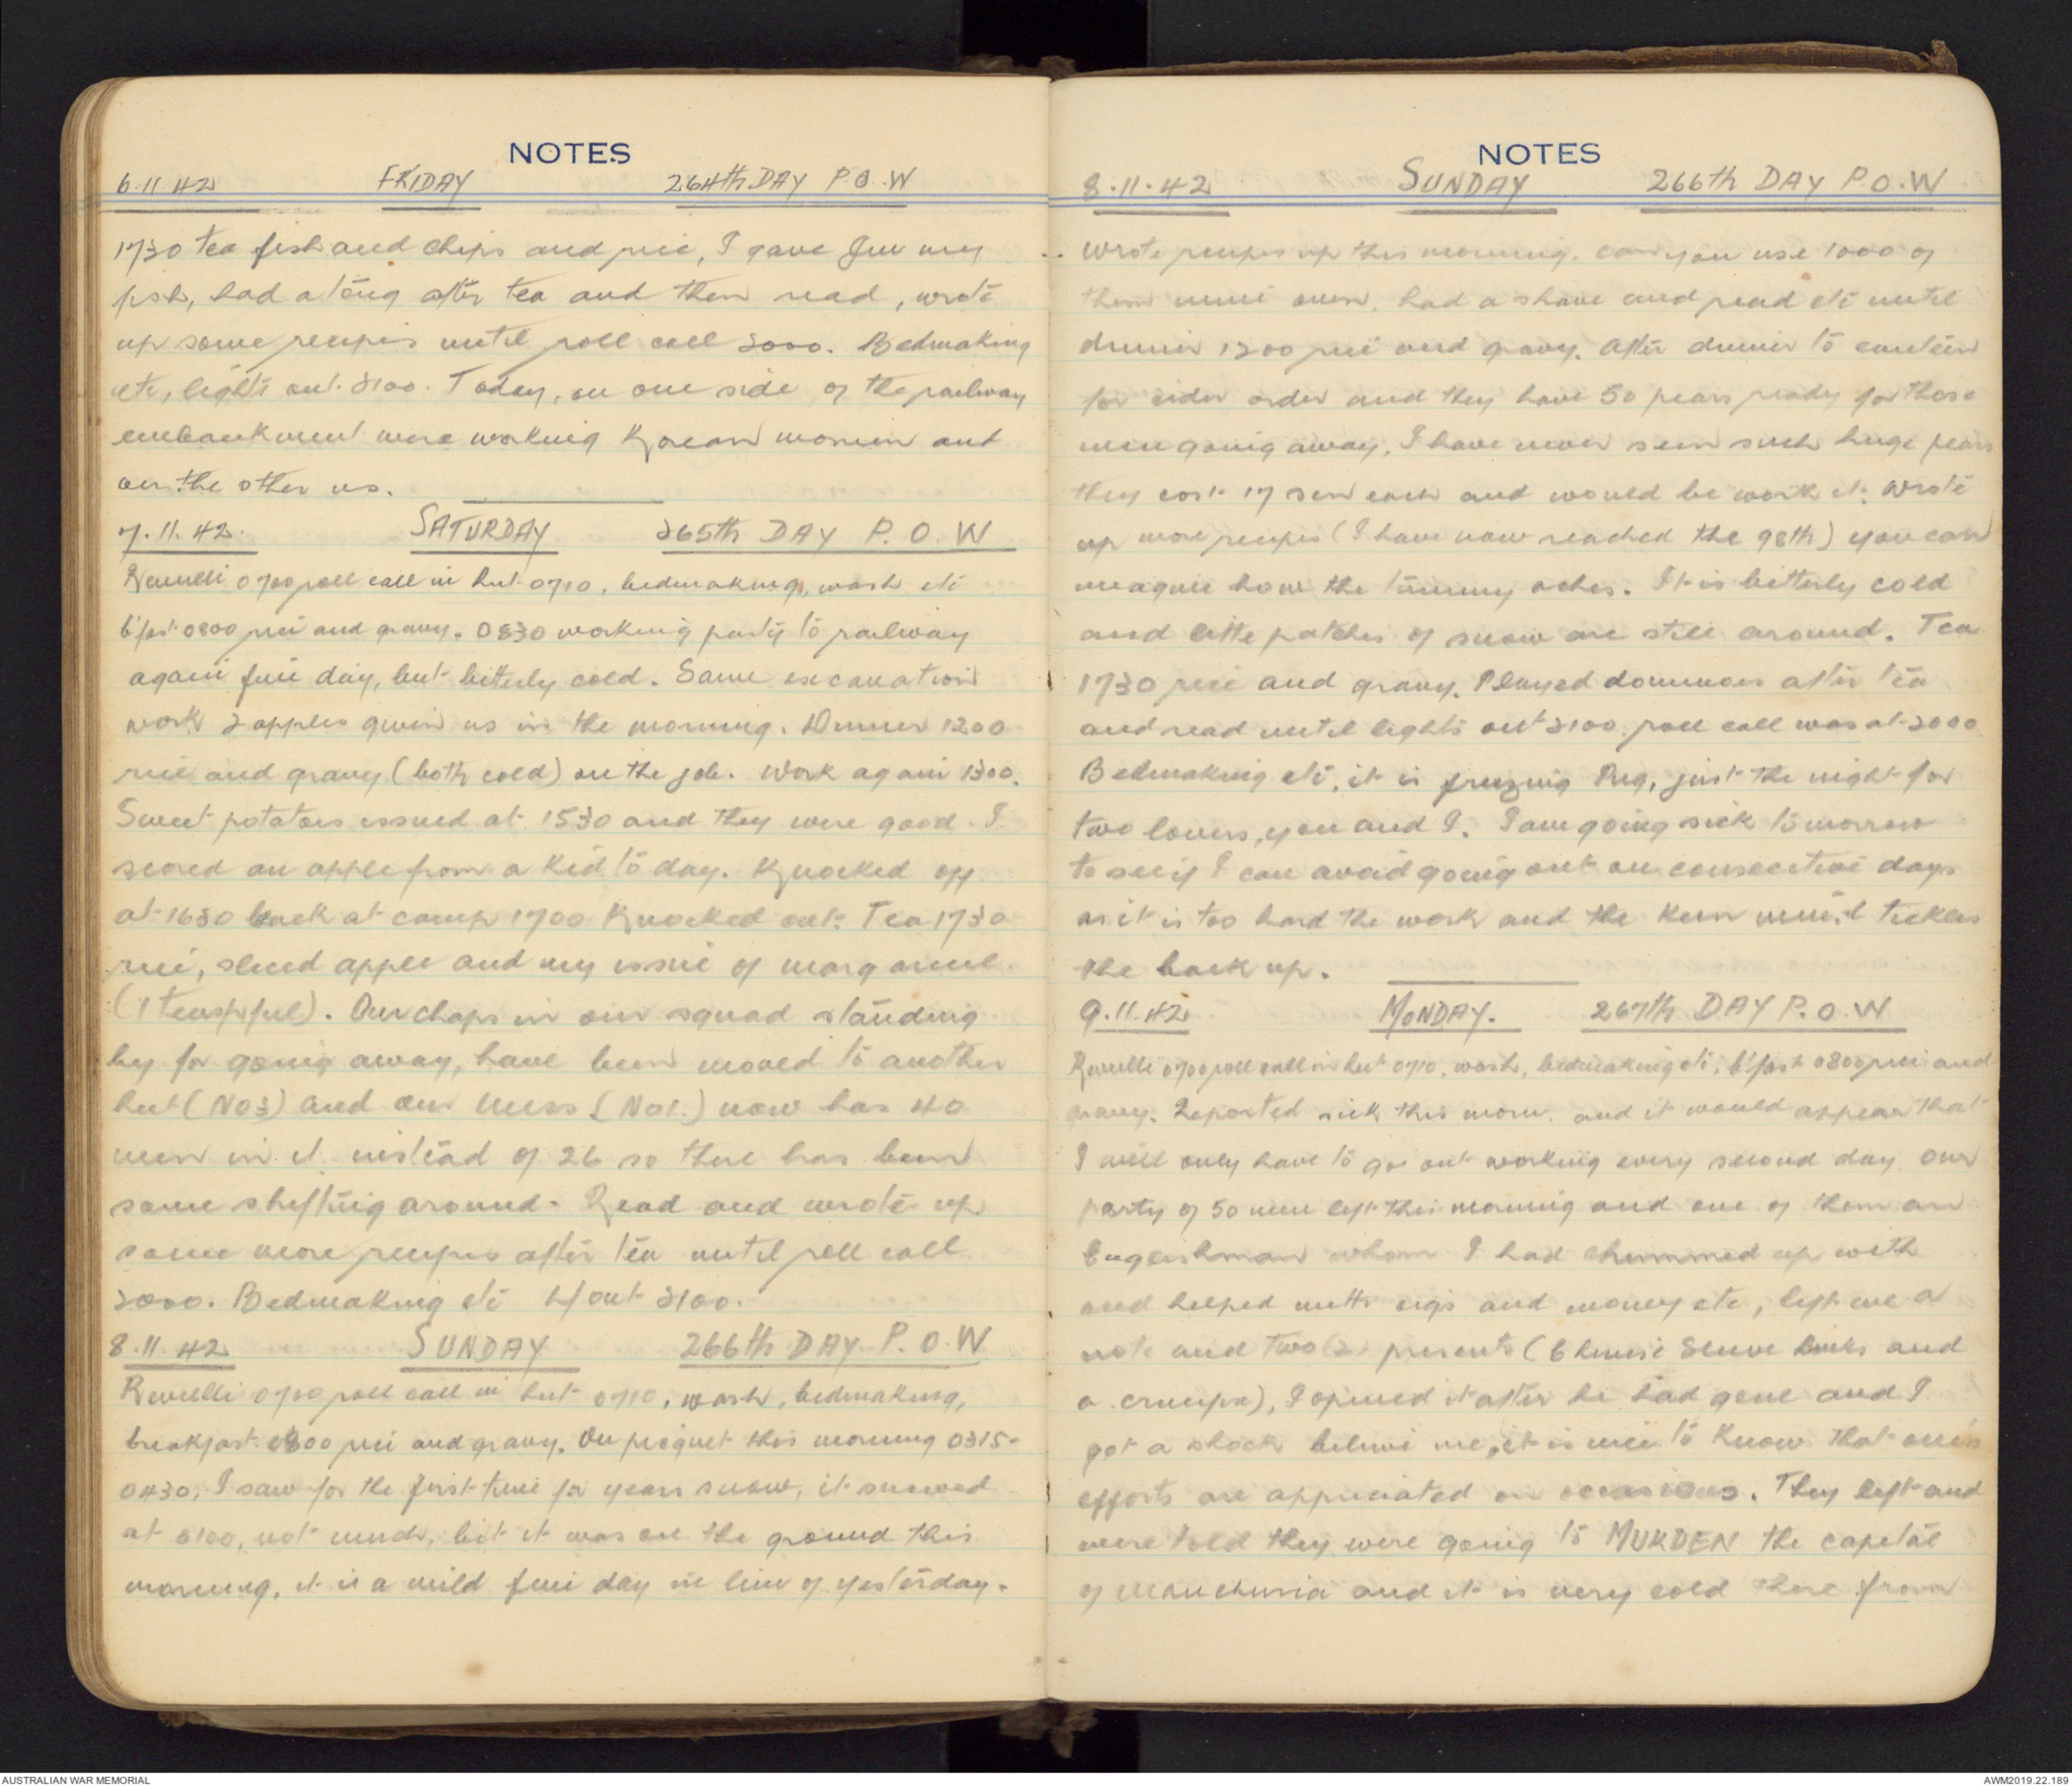 NOTES
6.11.42 FRIDAY 264th DAY P.O.W
1730 tea fish and chips and rice, I gave Jim my
fish, had a long after tea and then read, wrote
up some recipes until roll call 2000. Bedmaking
etc, lights out 2100. Today, on one side of the railway
embankment were working Korean women and
on the other us.
7.11.42. SATURDAY 265th DAY P.O.W
Reveille 0700 roll call in hut 0710, bedmaking, wash etc
b'fast 0800 rice and gravy. 0830 working party to railway
again fine day, but bitterly cold. Same excavation
work 2 apples given us in the morning. Dinner 1200
rice and gravy (both cold) on the job. Work again 1300.
Sweet potatoes issued at 1530 and they were good. I
scored an apple from a kid to day. Knocked off
at 1630 back at camp 1700 Knocked out. Tea 1730
rice, sliced apple and my issue of margarine
(1 teaspful). Our chaps in our squad standing
by for going away, have been moved to another
hut (No3) and our mess (No1.) now has 40
men in it instead of 26 so there has been
some shifting around. Read and wrote up
some more recipes after tea until roll call
2000. Bedmaking etc l/out 2100.
8.11.42 SUNDAY 266th DAY P.O.W
Reveille 0700 roll call in hut 0710, wash, bedmaking,
breakfast 0800 rice and gravy. On picquet this morning 0315-
0430, I saw for the first time for years snow, it snowed
at 0100, not much, but it was on the ground this
morning, it is a mild fine day in lieu of yesterday.
NOTES
8.11.42 SUNDAY 266th DAY P.O.W
Wrote recipes up this morning. can you use 1000 of
them mine own. had a shave and read etc until
dinner 1200 rice and gravy. After dinner to canteen
for cider order and they have 50 pears ready for those
men going away, I have never seen such huge pears
they cost 17 sen each and would be worth it. Wrote
up more recipes (I have now reached the 98th) you can
imagine how the tummy aches. It is bitterly cold
and little patches of snow are still around. Tea
1730 rice and gravy. Played dominoes after tea
and read until lights out 2100. roll call was at 2000
Bedmaking etc, it is freezing Reg, just the night for
two lovers, you and I. I am going sick tomorrow
to see if I can avoid going out on consecutive days
as it is too hard the work and the keen wind tickles
the back up.
9.11.42 MONDAY. 267th DAY P.O.W
Reveille 0700 roll call in hut 0710, wash, bedmaking etc, b'fast 0800 rice and
gravy. Reported sick this morn. and it would appear that
I will only have to go out working every second day. Our
party of 50 men left this morning and one of them an
Englishman whom I had chummed up with
and helped with cigs and money etc, left me a
note and two (2) presents (Chinese Sleeve links and
a crucifix), I opened it after he had gone and I
got a shock believe me, it is nice to know that one's
efforts are appreciated on occasions. They left and
were told they were going to MUKDEN the capital
of Manchuria and it is very cold there from